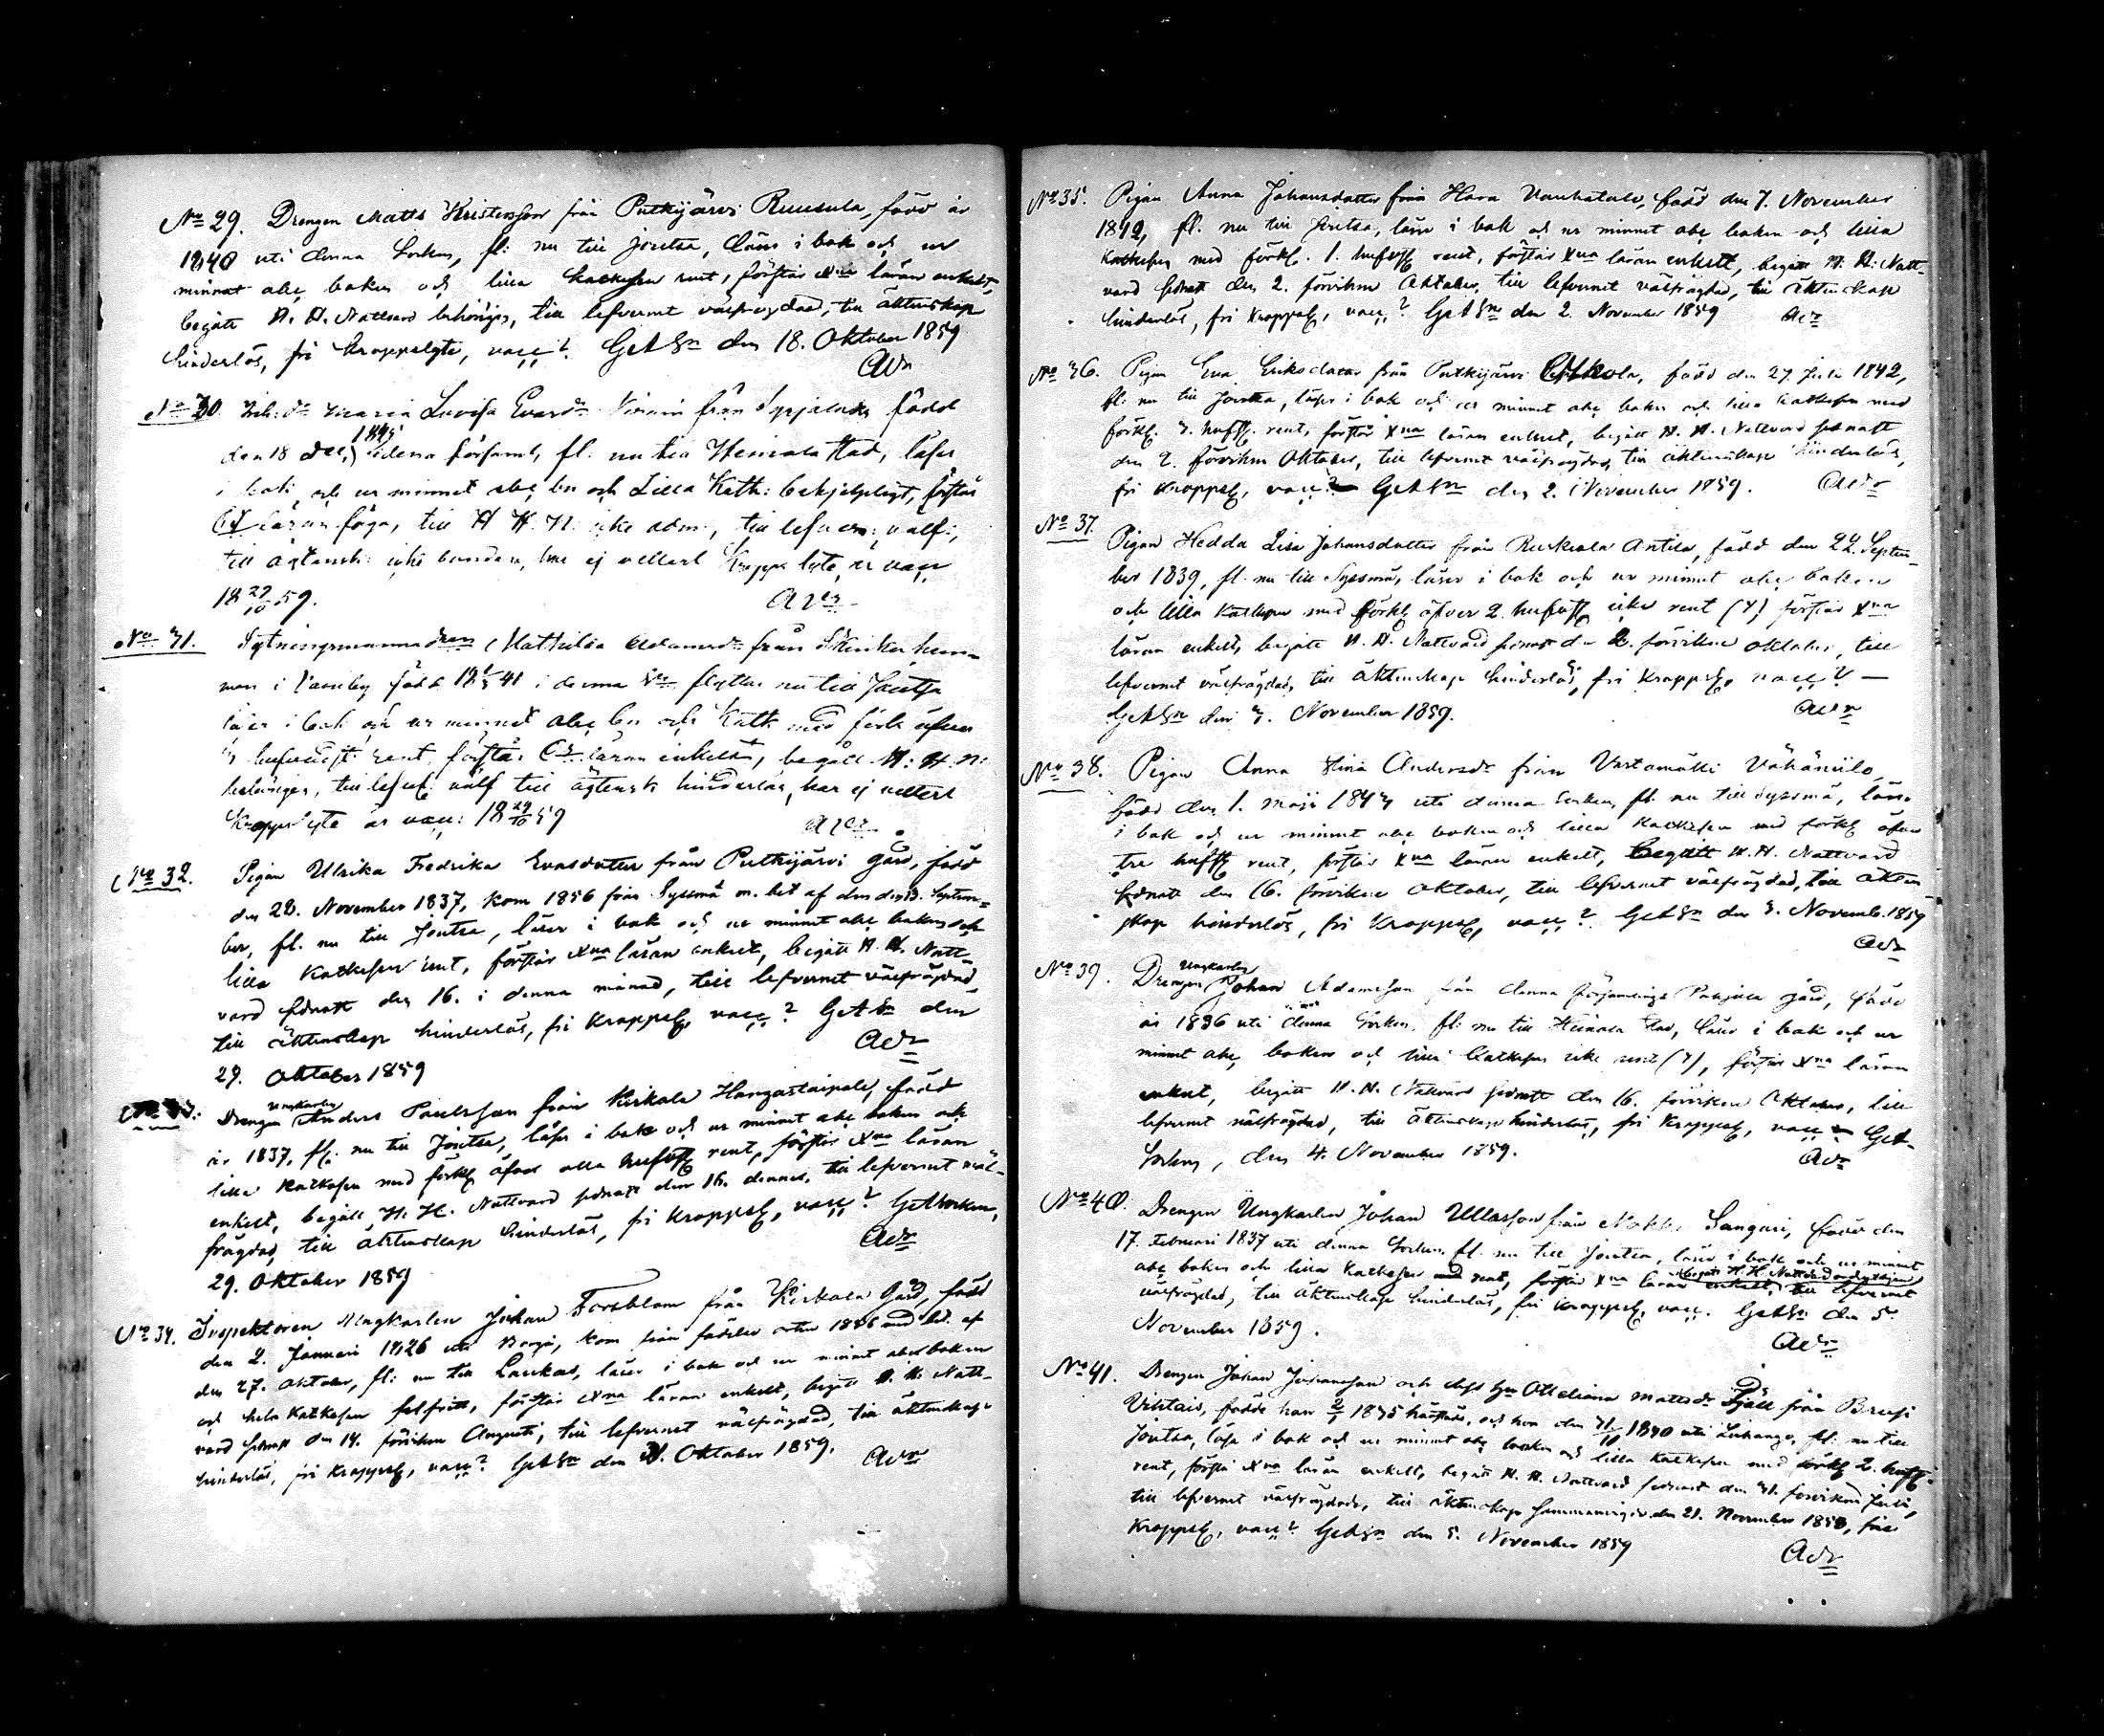 No 29. Drengen Matts Kristersson från Putkijärvi Ruusula, född år
1840 uti denna Socken, fl. nu till Joutsa, läser i bok och ur
minnet abc boken och lilla Katkesen rent, förstår Xna läran enkelt,
begått H. H. Nattvard behörigen, till lefvernet välfrägdad, till äktenskap
hinderlös, fri kroppslyte, vacc? GstSn den 18. Oktober 1859
Adr
No 30. Maria Lovisa Evardr från född
den 18 Dec. 1845 i denna församl, fl. nu till Heinola stad, läser
i bok och ur minnet abc bn och Lilla Kath: behjelpligt, förstår
läran föga, till H H. N. icke adm., till lefvern: välf:,
till ägtensk: icke bunden, har ej veterl Kropps lyte, är vacc
18 29/10 59.
No 31. Mathilda Adamsdr från
man i född 18 41 i denna Sn flyttar nu till Joutsa
läser i bok och ur minnet abc bn och Kath med förk: öfver
3 hufvudst: rent, förstår läran enkelt, begått H. H. N:
behörigen, till lefvf: välf till ägtensk hinderlös, har ej veterl
Kroppslyte är vacc: 18 29/10 59
No 32. Pigan Ulrika Fredrika Evasdotter från Putkijärvi gård, född
den 28. November 1837, kom 1856 från Sysmä m. bet af den den 13. Septem-
ber, fl. nu till Joutsa, läser i bok och ur minnet abc boken och
lilla Katkesen rent, förstår Xna läran enkelt, begått H. H. Natt-
vard sednast den 16. i denna månad, till lefvernet välfrägdad,
till äktenskap hinderlös, fri Kroppsl, vacc? GstSn den
29. Oktober 1859
Adr
Drengen Ungkarlen Anders Paulsson från Kirkola Hangastaipale, född
år 1837, fl. nu till Joutsa, läser i bok och ur minnet abc boken och
lilla Katkesen med förkl öfver alla hufvst rent, förstår Xna läran
enkelt, begått H. H. Nattvard sednast den 16. dennes, till lefvernet väl-
frägdad, till äktenskap hinderlös, fri Kroppsl, vacc?
29. Oktober 1859
Adr
No 34. Inspektoren Ungkarlen Johan Forsblom från Kirkola Gård, född
den 2. Januari 1826 uti Borgå, kom från födelse orten med bet. af
den 27. Oktober, fl. nu till Laukas, läser i bok och ur minnet abcboken
och hela Katkesen felfritt, förstår Xna läran enkelt, begått H. H. Natt-
vard sednast den 14. förvikne Augusti, till lefvernet välfrägdad, till äktenskap
hinderlös, fri Kroppsl, vacc? GstSn den Oktober 1859.
Adr
No 35. Pigan Anna Johansdotter från Hara Vanhatalo, född den 7. November
1842, fl. nu till Joutsa, läser i bok och ur minnet abc boken och lilla
Katkesen med förkl. 1. hufvst rent, förstår Xna läran enkelt, begått H. H. Natt-
vard sednast den 2. förvikne Oktober, till lefvernet välfrägdad, till äktenskap
hinderlös, fri Kroppsl, vacc? GstSn den 2. November 1859
Adr
No 36. Pigan Eva Eriksdotter från Putkijärvi, född den 27. Juli 1842,
fl. nu till Joutsa, läser i bok och ur minnet abc boken och lilla Katkesen med
förkl. 3. hufvst. rent, förstår Xna läran enkelt, begått H. H. Nattvard sednast
den 2. förvikne Oktober, till lefvernet välfrägdad, till äktenskap hinderlös,
fri Kroppsl, vacc? GstSn den 2. November 1859.
Adr
No 37. Pigan Hedda Lisa Johansdotter från Ruskeala Antila, född den 22. Septem-
ber 1839, fl. nu till Sysmä, läser i bok och ur minnet abc boken
och lilla Katkesen med förkl öfver 2. hufvst icke rent (Y) förstår Xna
läran enkelt, begått H. H. Nattvard sednast den 2. förvikne Oktober, till
lefvernet välfrägdad, till äktenskap hinderlös, fri Kroppsl, vacc?
GstSn den 3. November 1859.
Adr
No 38. Pigan Anna Stina Andersdr från Vastamäki Vähäniilo,
född den 1. Maji 1843 uti denna Socken, fl. nu till Sysmä, läser
i bok och ur minnet abc boken och lilla Katkesen med förkl öfver
tre hufvst rent, förstår Xna läran enkelt, begått H. H. Nattvard
sednast den 16. förvikne Oktober, till lefvernet välfrägdad, till äkten
skap hinderlös, fri Kroppsl, vacc? GstSn den 3. Novemb. 1859
Adr
No 39. Drengen Ungkarlen Johan Adamsson från denna församlings gård, född
år 1836 uti denna Socken, fl. nu till Heinola stad, läser i bok och ur
minnet abc boken och lilla Katkesen icke rent (Y), förstår Xna läran
enkelt, begått H. H. Nattvard sednast den 16. förvikne Oktober, till
lefvernet välfrägdad, till äktenskap hinderlös, fri Kroppsl, vacc Gst-
Socken, den 4. November 1859.
Adr
No 40. Drengen Ungkarlen Johan Ullasson från Sangari, född den
17. Februari 1837 uti denna Socken, fl. nu till Joutsa, läser i bok och ur minnet
abc boken och lilla Katkesen rent, förstår Xna läran enkelt, begått H. H. Nattvard till lefvernet
välfrägdad, till äktenskap hinderlös, fri Kroppsl, vacc. GstSn den 5.
November 1859.
Adr
No 41. Drengen Johan Johansson och dess Hu Ottiliana Mattsdr från
födde han 1835 härstädes, och hon den 1840 uti Luhango, fl. nu till
Joutsa, läsa i bok och ur minnet abc boken och lilla Katkesen med förkl 2. hufvst.
rent, förstå Xna läran enkelt, begått H. H. Nattvard sednast den 31. förvikne Juli,
till lefvernet välfrägdade, till äktenskap sammanvigde den 21. November 1858, fria
Kroppsl, vacc? GstSn den 5. November 1859
Adr